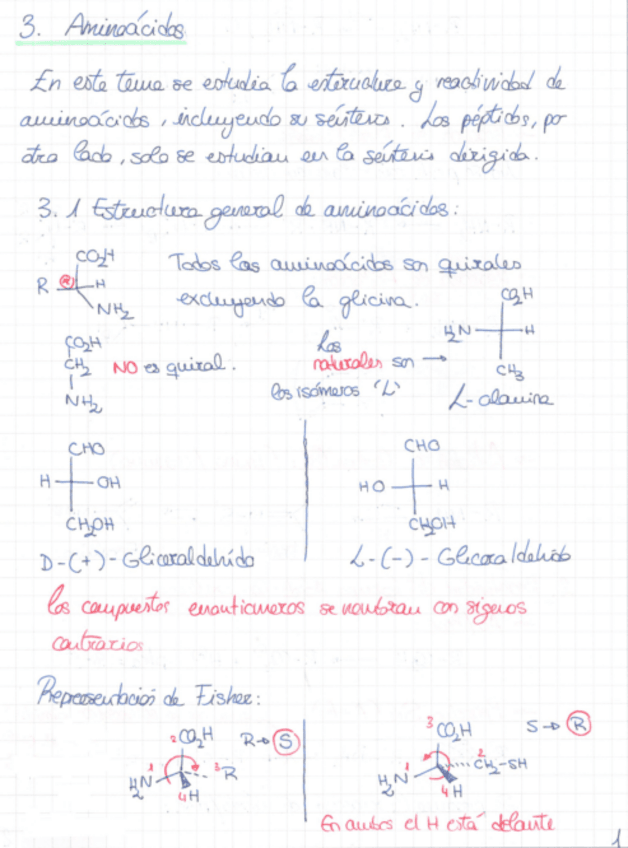 3. Aminoácidos
En este tema se estudia la estructura y reactividad de
aminoácidos, incluyendo su síntesis. Los péptidos, por
otro lado, solo se estudian en la síntesis dirigida.
3.1 Estructura general de aminoácidos:
CO2H
R * H
NH2
Todos los aminoácidos son quirales
excluyendo la glicina.
CO2H
CH2 NO es quiral.
NH2
Los
naturales son →
los isómeros 'L'
CO2H
H2N H
CH3
L-alanina
CHO
H OH
CH2OH
D-(+)-Gliceraldehído
CHO
HO H
CH2OH
L-(-)-Gliceraldehído
los compuestos enantiómeros se nombran con signos
contrarios
Representación de Fisher:
2 CO2H R→S
1 3 R
H2N
4 H
3 CO2H S→R
1 2 CH2-SH
H2N
4 H
En ambos el H está delante
1